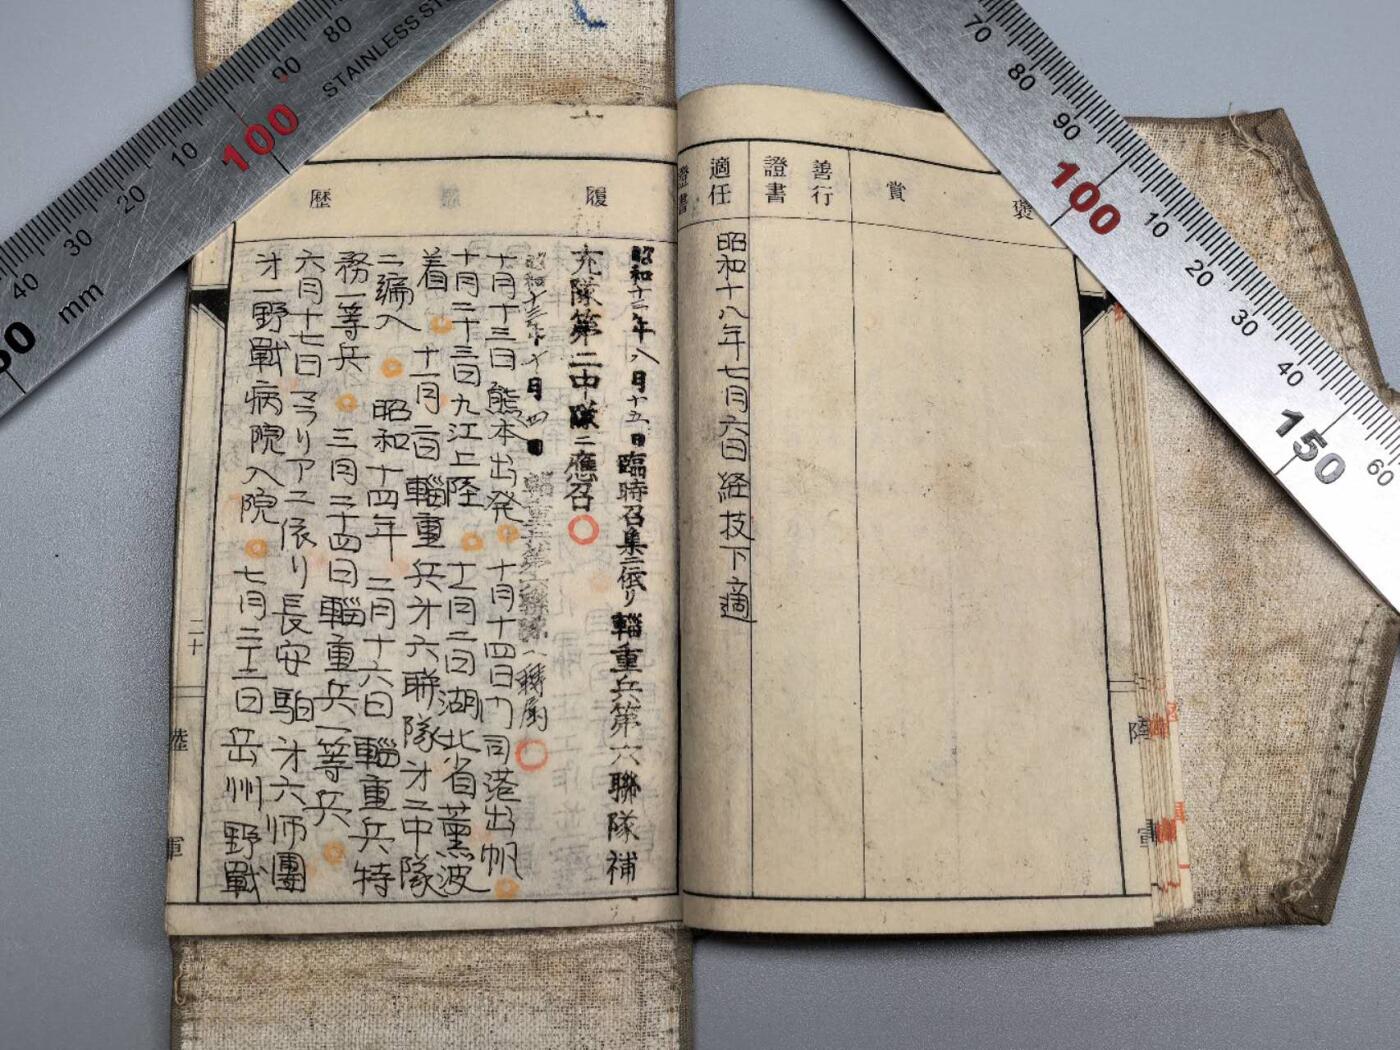 褒賞
善行證書
適任證書
昭和十八年七月六日経技下適
陸軍
履歴
昭和十二年八月十五日臨時召集ニ依リ輜重兵第六聯隊補
充隊第二中隊ニ應召
昭和十三年十月四日輜重兵第六聯隊ヘ轉属
十月十三日熊本出発 十月十四日門司港出帆
十月二十三日九江上陸 十一月二日湖北省薫波
着 十一月二日輜重兵才六聯隊才二中隊
ニ編入 昭和十四年二月十六日輜重兵特
務一等兵 三月二十四日輜重兵一等兵
六月十七日マラリアニ依リ長安駅才六师團
才一野戰病院入院 七月二十三日岳州野戰
二十
陸軍
80
90
100
10
20
30
40
mm
STAINLESS
70
80
90
100
10
20
30
40
150
60